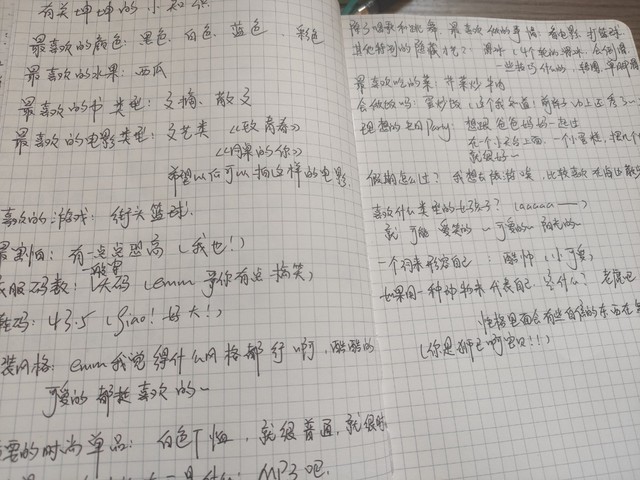 有关坤坤的小知识
最喜欢的颜色：黑色、白色、蓝色、彩色
最喜欢的水果：西瓜
最喜欢的书类型：文摘、散文
最喜欢的电影类型：文艺类《致青春》
《同桌的你》
希望以后可以拍这样的电影
喜欢的游戏：街头篮球
最害怕：有一点点恐高（我也！）
衣服码数：大码（emm 哥你有点搞笑）
鞋码：43.5（giao！好大！）
装风格：emm我觉得什么风格都行啊，酷酷的
可爱的都挺喜欢的～
要的时尚单品：白色T恤，就很普通，就很
MP3吧.
除了唱歌和跳舞，最喜欢做的事情：看电影 打篮球
其他特别的隐藏技？：滑冰（4个轮的滑冰，会倒滑，
一些技巧什么的，转圈，
最喜欢吃的菜 芹菜炒牛肉
会做饭吗：蛋炒饭（这个我知道！
理想的生日Party：想跟爸爸妈妈一起过
在一个小天台上面，一个小蛋糕，
就很好～
假期怎么过？我想去旅游唉，比较喜欢在海边
喜欢什么类型的女孩子？（aaaaa——）
就 可能 爱笑的～可爱的～阳光的～
一个词来形容自己：酷帅（小可爱）
如果用一种动物来代表自己，是什么？老鹰吧
性格里面会有些自信的东西在
（你是狮子啊宝贝！！）